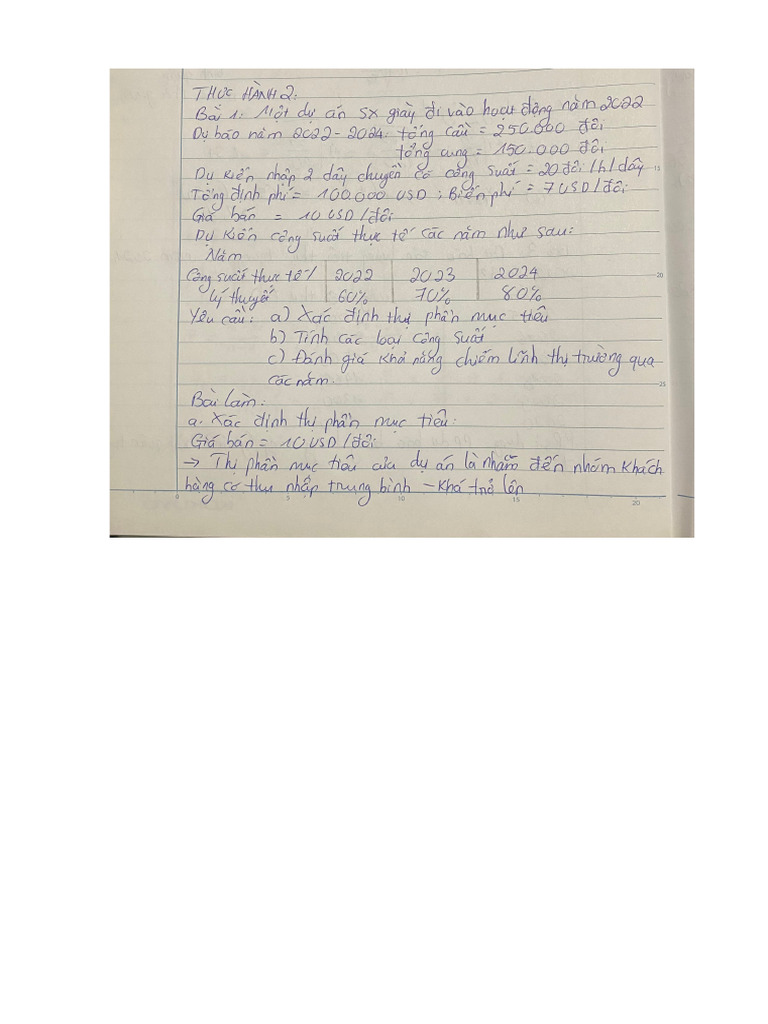 THỰC HÀNH 2:
Bài 1: Một dự án SX giày đi vào hoạt động năm 2022
Dự báo năm 2022 - 2024: tổng cầu = 250.000 đôi
tổng cung = 150.000 đôi
Dự kiến nhập 2 dây chuyền có công suất = 20 đôi /h/ dây
Tổng định phí = 100.000 USD ; Biến phí = 7 USD / đôi
Giá bán = 10 USD /đôi
Dự kiến công suất thực tế các năm như sau:
Năm
Công suất thực tế/ 2022 2023 2024
lý thuyết 60% 70% 80%
Yêu cầu: a) Xác định thị phần mục tiêu
b) Tính các loại công suất
c) Đánh giá khả năng chiếm lĩnh thị trường qua
các năm.
Bài làm:
a. Xác định thị phần mục tiêu:
Giá bán = 10 USD /đôi
→ Thị phần mục tiêu của dự án là nhắm đến nhóm khách
hàng có thu nhập trung bình - khá trở lên
15
20
25
0 5 10 15 20